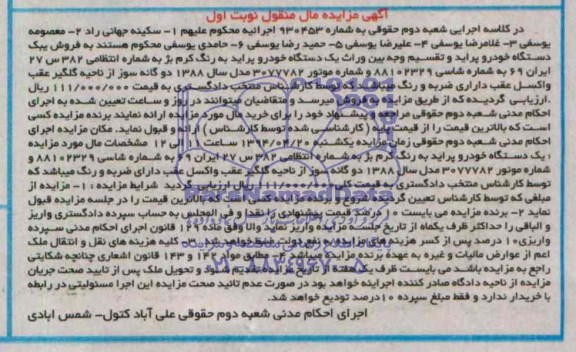 آگهی مزایده مال منقول نوبت اول
در کلاسه اجرایی شعبه دوم حقوقی به شماره ۹۳۰۴۵۳ اجرائیه محکوم علیهم ۱- سکینه جهانی راد ۲- معصومه
یوسفی ۳- غلامرضا یوسفی ۴- علیرضا یوسفی ۵- حمید رضا یوسفی ۶- حامدی یوسفی محکوم هستند به فروش یک
دستگاه خودرو پراید و تقسیم وجه بین وراث یک دستگاه خودرو پراید به رنگ کرم بژ به شماره انتظامی ۳۸۲ س ۲۷
ایران ۶۹ به شماره شاسی ۸۸۱۰۲۳۲۹ و شماره موتور ۳۰۷۷۷۸۲ مدل سال ۱۳۸۸ دو گانه سوز از ناحیه گلگیر عقب
واکسل عقب دارای ضربه و رنگ میباشد که توسط کارشناس منتخب دادگستری به قیمت ۱۱۱/۰۰۰/۰۰۰ ریال
.ارزیابی گردیده که از طریق مزایده به فروش میرسد و متقاضیان میتوانند در روز و ساعت تعیین شده به اجرای
احکام مدنی شعبه دوم حقوقی مراجعه و پیشنهاد خود را برای خرید مال مورد مزایده ارائه نمایند برنده مزایده کسی
است که بالاترین قیمت را از قیمت پایه (کارشناسی شده توسط کارشناس) ارائه و قبول نماید. مکان مزایده اجرای
احکام مدنی شعبه دوم حقوقی زمان مزایده یکشنبه ساعت الی ۱۲ مشخصات مال مورد مزایده
: یک دستگاه خودرو پراید به رنگ کرم بژ به شماره انتظامی ۳۸۲ س ۲۷ ایران ۶۹ به شماره شاسی ۸۸۱۰۲۳۲۹ و
شماره موتور ۳۰۷۷۷۸۲ مدل سال ۱۳۸۸ دو گانه سوز از ناحیه گلگیر عقب واکسل عقب دارای ضربه و رنگ میباشد که
توسط کارشناس منتخب دادگستری به قیمت کل ۱۱۱/۰۰۰/۰۰۰ ریال ارزیابی گردید شرایط مزایده : ۱- مزایده از
مبلغی که توسط کارشناس تعیین گردیده شروع و برنده مزایده کسی است که بالاترین قیمت را در جلسه مزایده قبول
نماید ۲- برنده مزایده می بایست ۱۰ درصد قیمت پیشنهادی را نقدا وفی المجلس به حساب سپرده دادگستری واریز
و الباقی را حداکثر ظرف یکماه از تاریخ جلسه مزایده واریز نماید والا وفق ماده ۱۲۹ قانون اجرای احکام مدنی سپرده
واریزی ۱۰ درصد پس از کسر هزینه های مزایده به نفع دولت ضبط خواهد شد کلیه هزینه های نقل و انتقال ملک
اعم از عوارض مالیات و غیره به عهده برنده مزایده میباشد ۴- مطابق مواد ۱۴۲ و ۱۴۳ قانون اشعاری چنانچه شکایتی
راجع به مزایده باشد می بایست ظرف یک هفته از تاریخ مزایده تقدیم شود و تحویل ملک پس از تایید صحت جریان
مزایده از ناحیه دادگاه صادر کننده اجرایئه خواهد بود در صورت عدم تائید صحت مزایده این اجرا مسئولیتی در رابطه
با خریدار ندارد و فقط مبلغ سپرده ۱۰درصد تودیع خواهد شد.
اجرای احکام مدنی شعبه دوم حقوقی علی آباد کتول- شمس ابادی